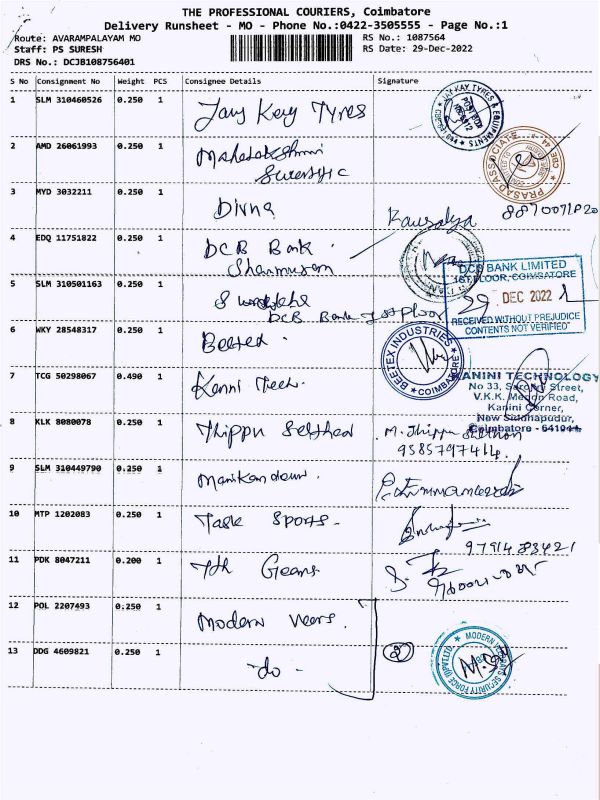 THE PROFESSIONAL COURIERS, Coimbatore
Delivery Runsheet - MO - Phone No.:0422-3505555 - Page No.:1
Route: AVARAMPALAYAM MO
RS No.: 1087564
Staff: PS SURESH
RS Date: 29-Dec-2022
DRS No.: DCJB108756401
S No Consignment No Weight PCS Consignee Details Signature
1 SLM 310460526 0.250 1 Jay Kay Tyres
JAY KAY TYRES &
2 AMD 26061993 0.250 1 Mahalakshmi
PRASAD ASSOCIATE
3 MYD 3032211 0.250 1 Divya
Kausalya
4 EDQ 11751822 0.250 1 DCB Bank
DCB BANK LIMITED
1ST FLOOR, COIMBATORE
29 DEC 2022
RECEIVED WITHOUT PREJUDICE
CONTENTS NOT VERIFIED"
5 SLM 310501163 0.250 1
DCB Bank 1st Floor
6 WKY 28548317 0.250 1
BEETEX INDUSTRIES
COIMBATORE
7 TCG 50298067 0.490 1 Kanni Tech.
KANINI TECHNOLOGY
No 33, Street,
V.K.K. Menon Road,
Kanini Corner,
New Sidhapudur,
Coimbatore - 641044
8 KLK 8080078 0.250 1 Thippu
M. Thippu
9585797414.
9 SLM 310449790 0.250 1 Manikandan.
10 MTP 1202083 0.250 1 Task Sports-
9791483421
11 PDK 8047211 0.200 1 Gears
12 POL 2207493 0.250 1 Modern
13 DDG 4609821 0.250 1 -do-
2
MODERN
SECURITY FORCE